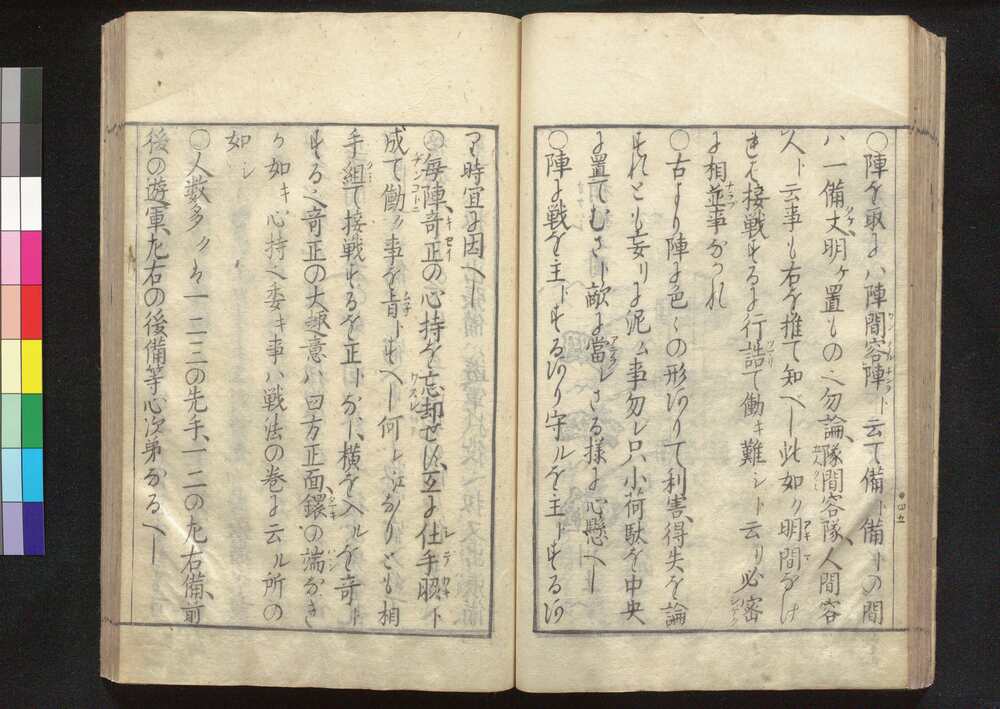 〇陣を取るにハ陣間容陣ト云て備ト備トの間
ハ一備丈明ヶ置もの也勿論隊間容隊、人間容
人ト云事も右を推て知べし此如ク明間なけ
れば接戦するに行詰て働キ難シト云リ必密
に相並事なかれ
〇古より陣に色々の形ありて利害、得失を論
ずれとも妄リに泥ム事勿レ只小荷駄を中央
に置てむさト敵に當レさる様に心懸べし
〇陣に戦を主トするあり守ルを主トするあ
り時宜に因べし
〇毎陣、奇正の心持を忘却せず互に仕手脇ト
成て働ク事を旨トすべし何レ江なりとも相
手組て接戦するを正トなし、横を入ルを奇ト
する也奇正の大趣意ハ四方正面、鐶の端なき
か如キ心持へ委キ事ハ戦法の巻に云ル所の
如シ
〇人数多クハ一二三の先手、一二の左右備、前
後の遊軍、左右の後備等心次第なるべし
四五